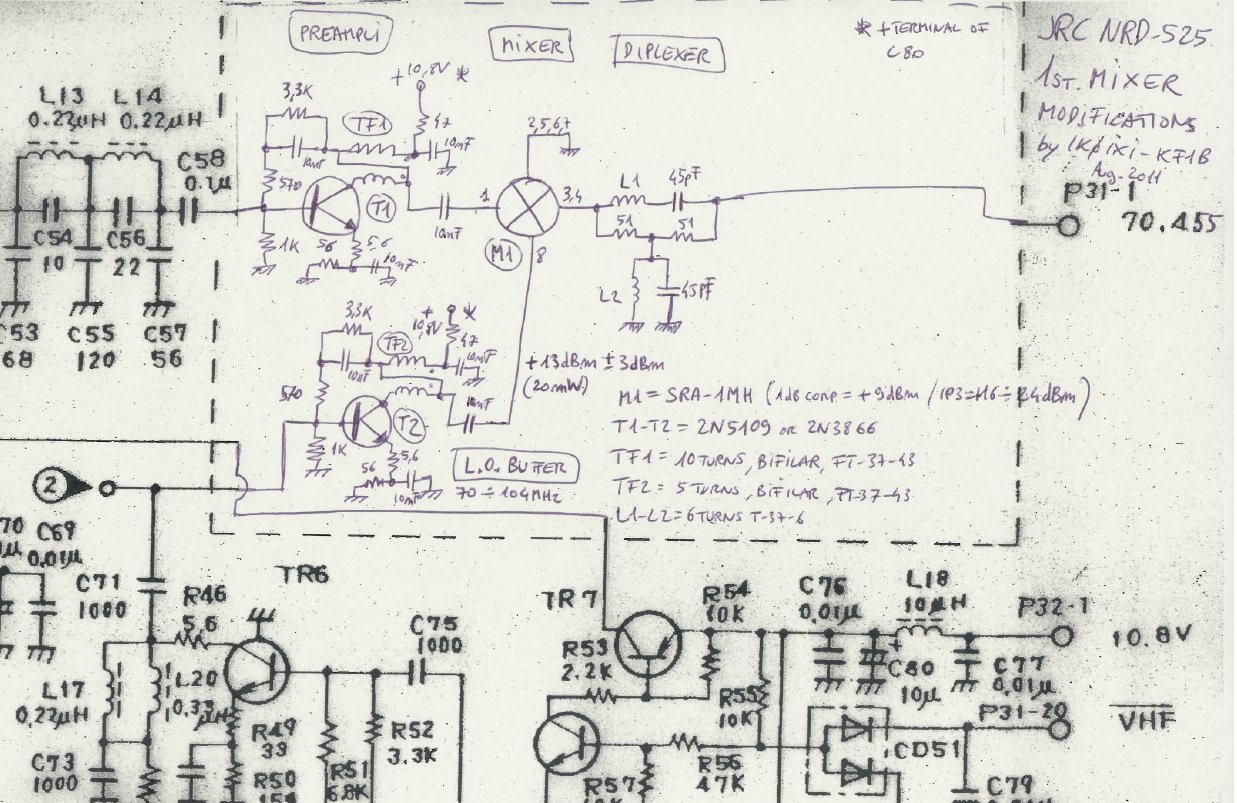 PREAMPLI
MIXER
DIPLEXER
* + TERMINAL OF
C80
JRC NRD-525
1ST. MIXER
MODIFICATIONS
by IKØIXI - KF1B
Aug-2011
+10,8V *
3,3K
TF1
47
10nF
10nF
570
1K
T1
56
5,6
10nF
10nF
1
2,5,6,7
3,4
M1
8
L1
45pF
51
51
L2
45pF
L13
0.22µH
L14
0.22µH
C58
0.1µ
C54
10
C56
22
C53
68
C55
120
C57
56
P31-1
70.455
3.3K
TF2
+
10,8V
*
47
10nF
10nF
570
1K
T2
10nF
56
5,6
10nF
+13dBm ± 3dBm
(20mW)
L.O. BUFFER
70 ÷ 104MHz
M1 = SRA-1MH (1dB comp = +9dBm / IP3=+16 ÷ 24dBm)
T1-T2 = 2N5109 OR 2N3866
TF1 = 10 TURNS, BIFILAR, FT-37-43
TF2 = 5 TURNS, BIFILAR, FT-37-43
L1-L2 = 6 TURNS T-37-6
2
70
C69
0.01µ
C71
1000
R46
5.6
TR6
C75
1000
L17
0.22µH
L20
0.33µH
R49
33
C73
1000
R50
R51
6.8K
R52
3.3K
TR7
R53
2.2K
R54
10K
R55
10K
R56
47K
R57
C76
0.01µ
L18
10µH
P32-1
10.8V
+
C80
10µ
C77
0.01µ
P31-20
VHF
CD51
C79